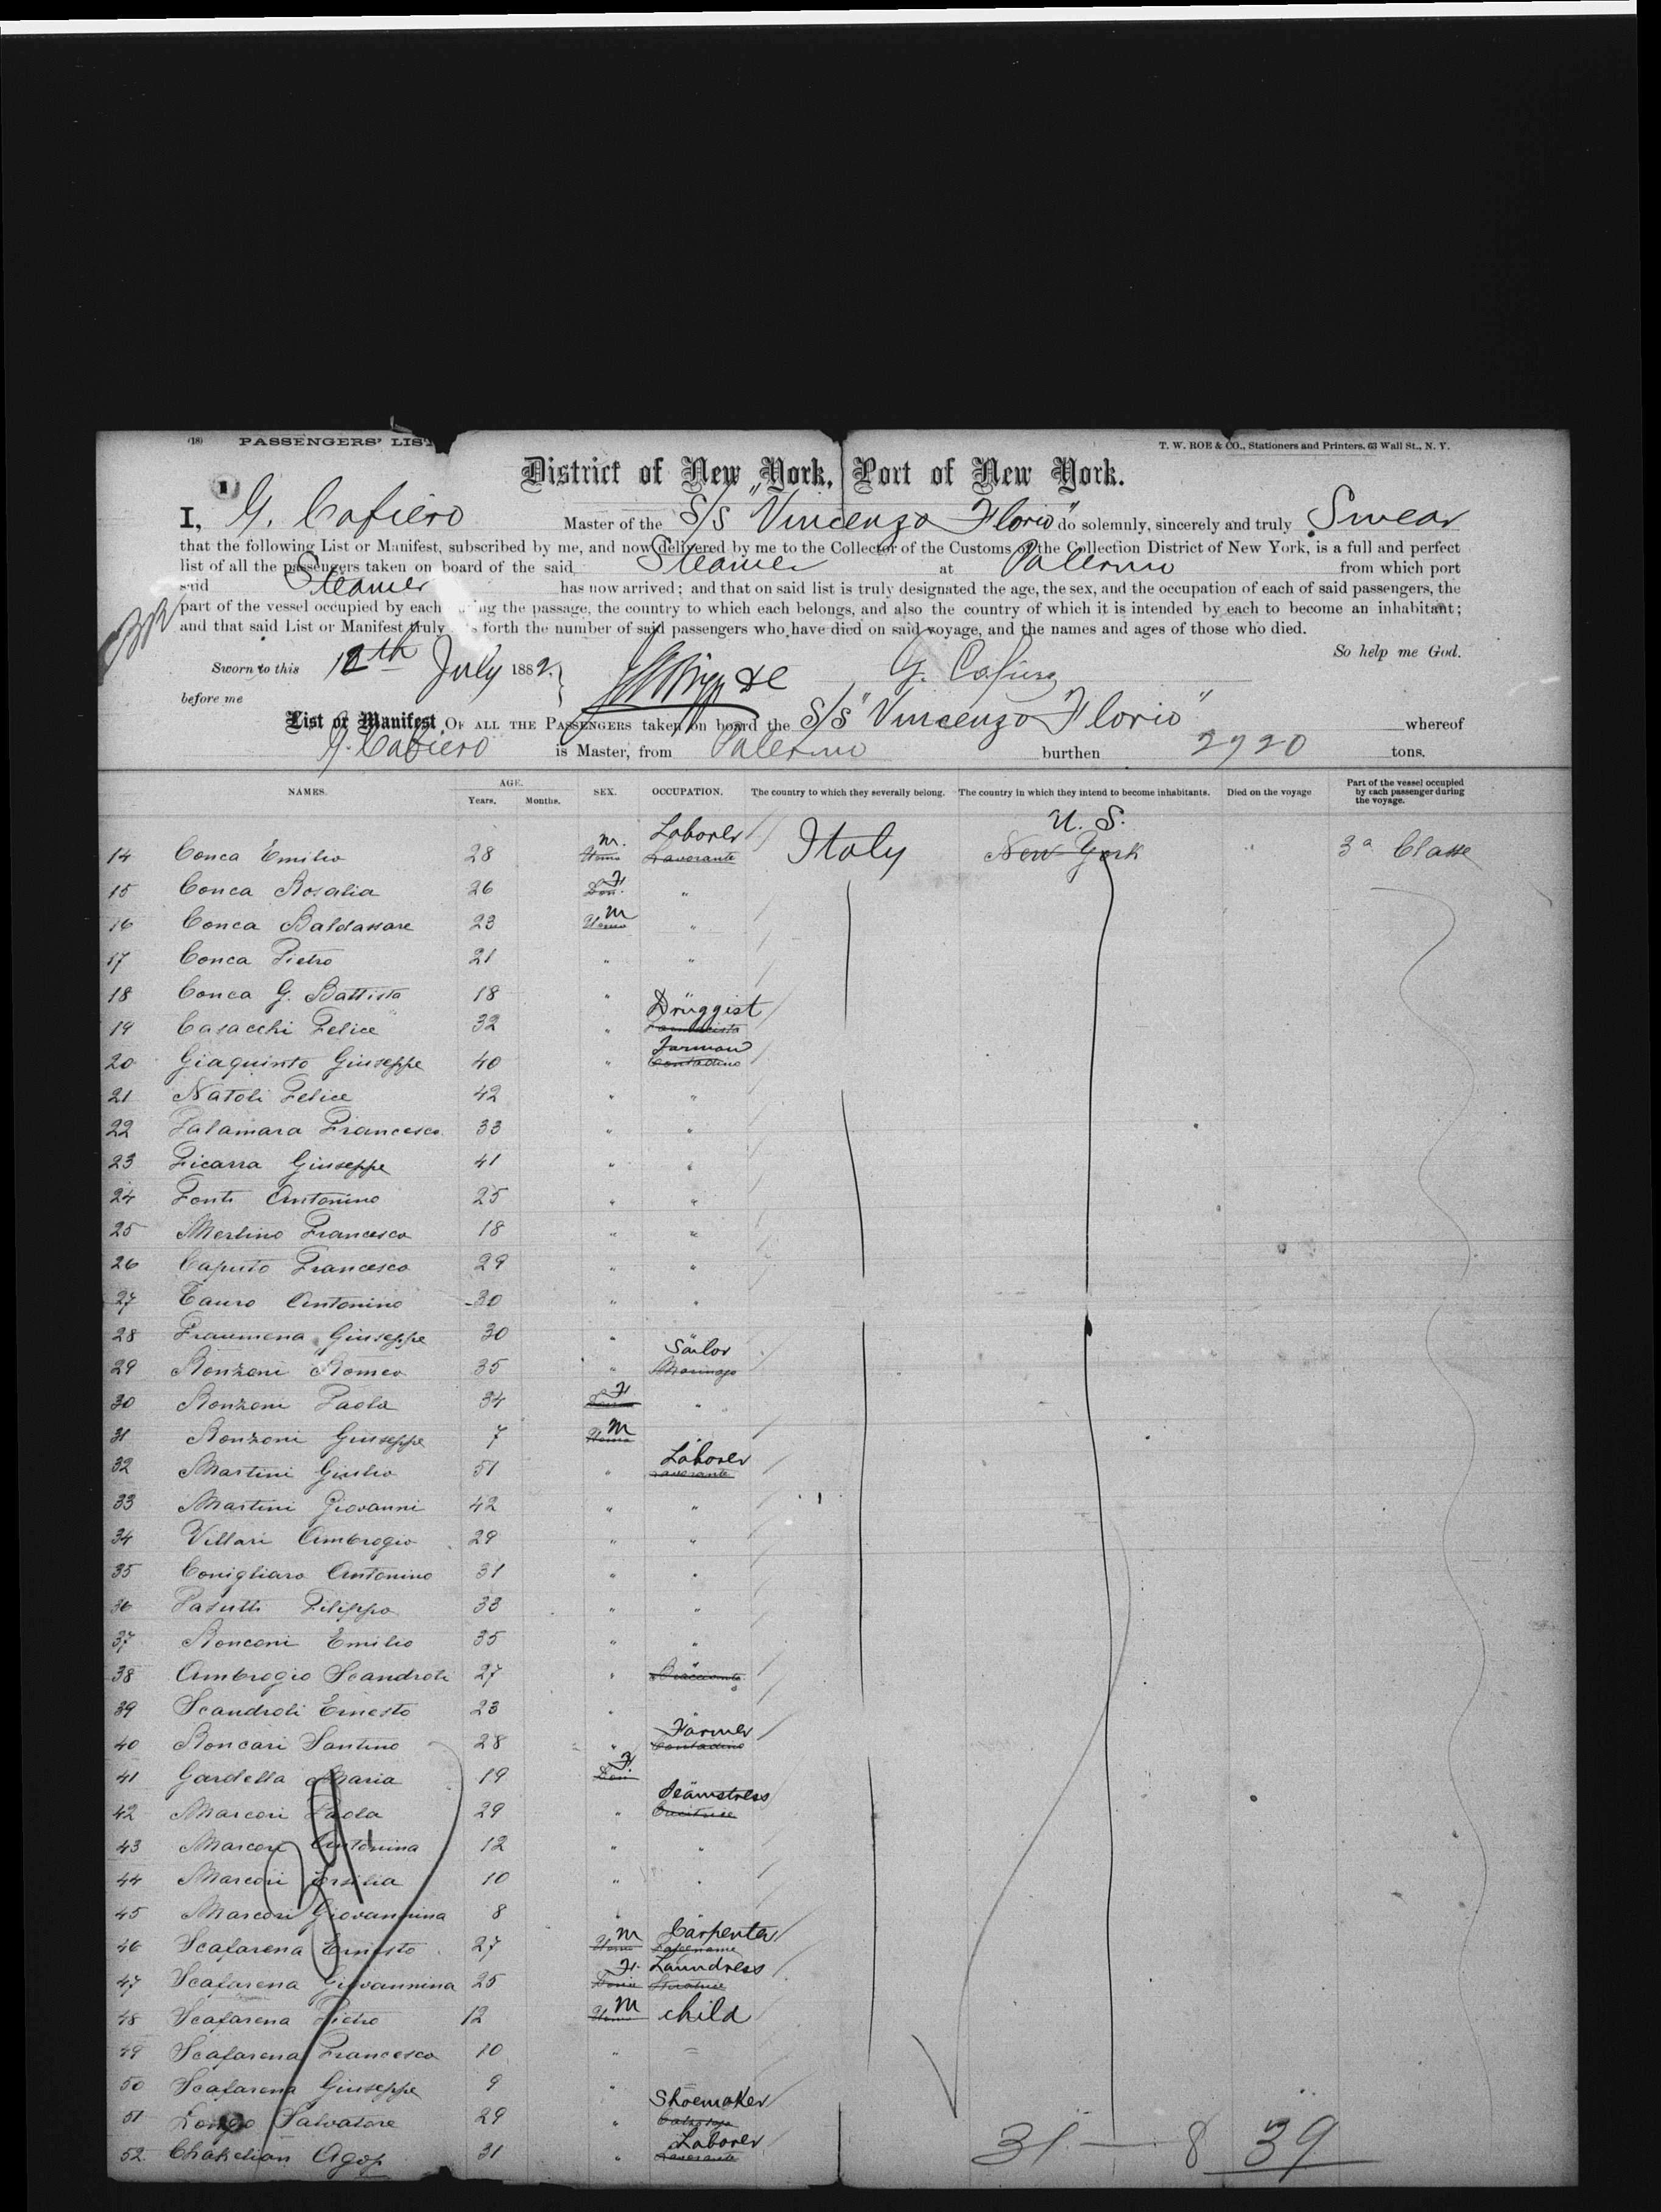 (18) PASSENGERS' LIST
T. W. ROE & CO., Stationers and Printers, 63 Wall St., N. Y.
1
District of New York, Port of New York.
I, G. Cafiero Master of the S/S "Vincenzo Florio" do solemnly, sincerely and truly Swear
that the following List or Manifest, subscribed by me, and now delivered by me to the Collector of the Customs of the Collection District of New York, is a full and perfect
list of all the passengers taken on board of the said Steamer at Palermo from which port
said Steamer has now arrived; and that on said list is truly designated the age, the sex, and the occupation of each of said passengers, the
part of the vessel occupied by each the passage, the country to which each belongs, and also the country of which it is intended by each to become an inhabitant;
and that said List or Manifest truly forth the number of said passengers who have died on said voyage, and the names and ages of those who died.
So help me God.
Sworn to this 12th July 1882. G. Cafiero
before me
List or Manifest OF ALL THE PASSENGERS taken on board the S/S "Vincenzo Florio" whereof
G. Cafiero is Master, from Palermo burthen 2920 tons.
NAMES. AGE. Years. Months. SEX. OCCUPATION. The country to which they severally belong. The country in which they intend to become inhabitants. Died on the voyage Part of the vessel occupied by each passenger during the voyage.
M. Laborer U. S.
14 Conca Emilio 28 Uomo Lavorante Italy New York " 3a Classe
15 Conca Rosalia 26 Don. F "
16 Conca Baldassare 23 Uomo M "
17 Conca Pietro 21 " "
18 Conca G. Battista 18 " "
19 Casacchi Felice 32 " Druggist Farmacista
20 Giaquinto Giuseppe 40 " Farman Contadino
21 Natoli Felice 42 " "
22 Palamara Francesco 33 " "
23 Ficarra Giuseppe 41 " "
24 Fonti Antonino 25 " "
25 Merlino Francesco 18 " "
26 Caputo Francesco 29 " "
27 Tauro Antonino 30 " "
28 Fraumena Giuseppe 30 "
29 Ronzoni Romeo 35 " Sailor Marinaio
30 Ronzoni Paola 34 F Donna "
31 Ronzoni Giuseppe 7 M Uomo "
32 Martini Giulio 51 " Laborer Lavorante
33 Martini Giovanni 42 " "
34 Villari Ambrogio 29 " "
35 Conigliaro Antonino 31 " "
36 Pasutti Filippo 33 " "
37 Ronconi Emilio 35 " "
38 Ambrogio Scandroli 27 " "
39 Scandroli Ernesto 23 "
40 Roncari Santino 28 " Farmer Contadino
41 Gardella Maria 19 F. Don. "
42 Marcori Paola 29 " Seamstress Cucitrice
43 Marcori Antonina 12 " "
44 Marcori Ersilia 10 " "
45 Marcori Giovannina 8 " "
46 Scafarena Ernesto 27 M Uomo Carpenter Falegname
47 Scafarena Giovannina 25 F. Donna Laundress Stiratrice
48 Scafarena Pietro 12 M Uomo child
49 Scafarena Francesco 10 " "
50 Scafarena Giuseppe 9 " "
51 Longo Salvatore 29 " Shoemaker
52 Chakelian Agop 31 " Laborer Lavorante
31 — 8 39